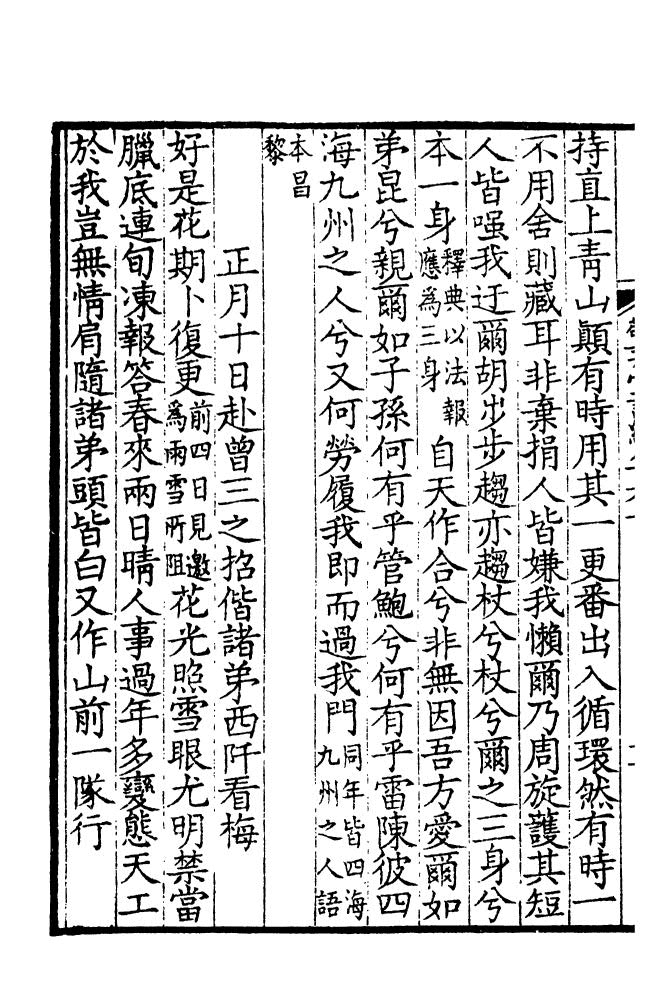 持直上青山顛有時用其一更番出入循環然有時一
不用舍則藏耳非棄捐人皆嫌我懶爾乃周旋護其短
人皆嗤我迂爾胡步步趨亦趨杖兮杖兮爾之三身兮
本一身釋典以法報應為三身自天作合兮非無因吾方愛爾如
弟昆兮親爾如子孫何有乎管鮑兮何有乎雷陳彼四
海九州之人兮又何勞履我即而過我門同年皆四海九州之人語
本昌黎
正月十日赴曾三之招偕諸弟西阡看梅
好是花期卜復更前四日見邀為雨雪所阻花光照雪眼尤明禁當
臘底連旬凍報答春來兩日晴人事過年多變態天工
於我豈無情肩隨諸弟頭皆白又作山前一隊行